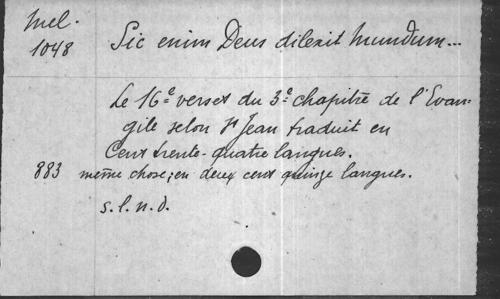 Mel.
1048
Sic enim Deus dilexit Mundum...
Le 16e verset du 3e chapitre de l'Evan-
gile selon St Jean traduit en
Cent trente-quatre langues.
883 même chose; en deux cent quinze langues.
s.l.n.d.